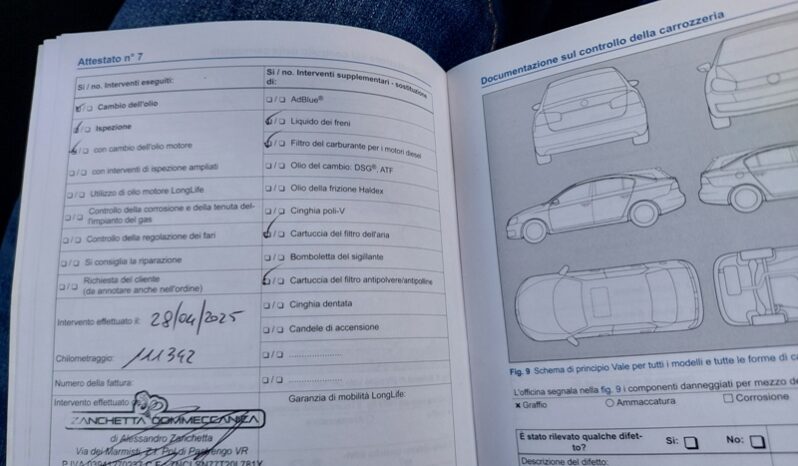 Attestato n° 7
Si / no. Interventi eseguiti:
❏ / ❏ Cambio dell'olio
❏ / ❏ Ispezione
❏ / ❏ con cambio dell'olio motore
❏ / ❏ con interventi di ispezione ampliati
❏ / ❏ Utilizzo di olio motore LongLife
❏ / ❏ Controllo della corrosione e della tenuta dell'impianto del gas
❏ / ❏ Controllo della regolazione dei fari
❏ / ❏ Si consiglia la riparazione
❏ / ❏ Richiesta del cliente
(da annotare anche nell'ordine)
Intervento effettuato il: 28/04/2025
Chilometraggio: 111392
Numero della fattura:
Intervento effettuato da
ZANCHETTA COMMECCANZA
di Alessandro Zanchetta
Via dei Marmisti, 21 Pol di Pastrengo VR
Si / no. Interventi supplementari - sostituzione
di:
❏ / ❏ AdBlue®
❏ / ❏ Liquido dei freni
❏ / ❏ Filtro del carburante per i motori diesel
❏ / ❏ Olio del cambio: DSG®, ATF
❏ / ❏ Olio della frizione Haldex
❏ / ❏ Cinghia poli-V
❏ / ❏ Cartuccia del filtro dell'aria
❏ / ❏ Bomboletta del sigillante
❏ / ❏ Cartuccia del filtro antipolvere/antipolline
❏ / ❏ Cinghia dentata
❏ / ❏ Candele di accensione
❏ / ❏ ....................
❏ / ❏ ....................
Garanzia di mobilità LongLife:
Documentazione sul controllo della carrozzeria
Fig. 9 Schema di principio Vale per tutti i modelli e tutte le forme di
L'officina segnala nella fig. 9 i componenti danneggiati per mezzo
× Graffio ○ Ammaccatura □ Corrosione
È stato rilevato qualche difetto? Sì: ❏ No: ❏
Descrizione del difetto: